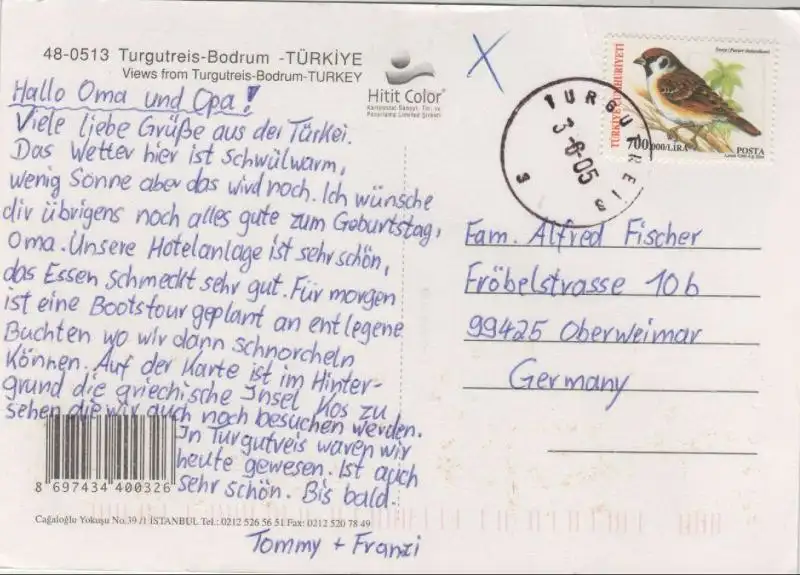 48-0513 Turgutreis-Bodrum -TÜRKİYE
Views from Turgutreis-Bodrum-TURKEY
Hitit Color
Hallo Oma und Opa!
Viele liebe Grüße aus der Türkei.
Das Wetter hier ist schwülwarm,
wenig Sonne aber das wird noch. Ich wünsche
dir übrigens noch alles gute zum Geburtstag,
Oma. Unsere Hotelanlage ist sehr schön,
das Essen schmeckt sehr gut. Für morgen
ist eine Bootstour geplant an entlegene
Buchten wo wir dann schnorcheln
können. Auf der Karte ist im Hinter-
grund die griechische Insel Kos zu
sehen die wir auch noch besuchen werden.
In Turgutreis waren wir
heute gewesen. Ist auch
sehr schön. Bis bald.
Tommy + Franzi
8 697434 400326
Cağaloğlu Yokuşu No.39/1 İSTANBUL Tel.: 0212 526 56 51 Fax: 0212 520 78 49
X
TURGUTREIS
3-8-05
S
S
TÜRKİYE CUMHURİYETİ
700.000/LİRA
POSTA
Fam. Alfred Fischer
Fröbelstrasse 10b
99425 Oberweimar
Germany